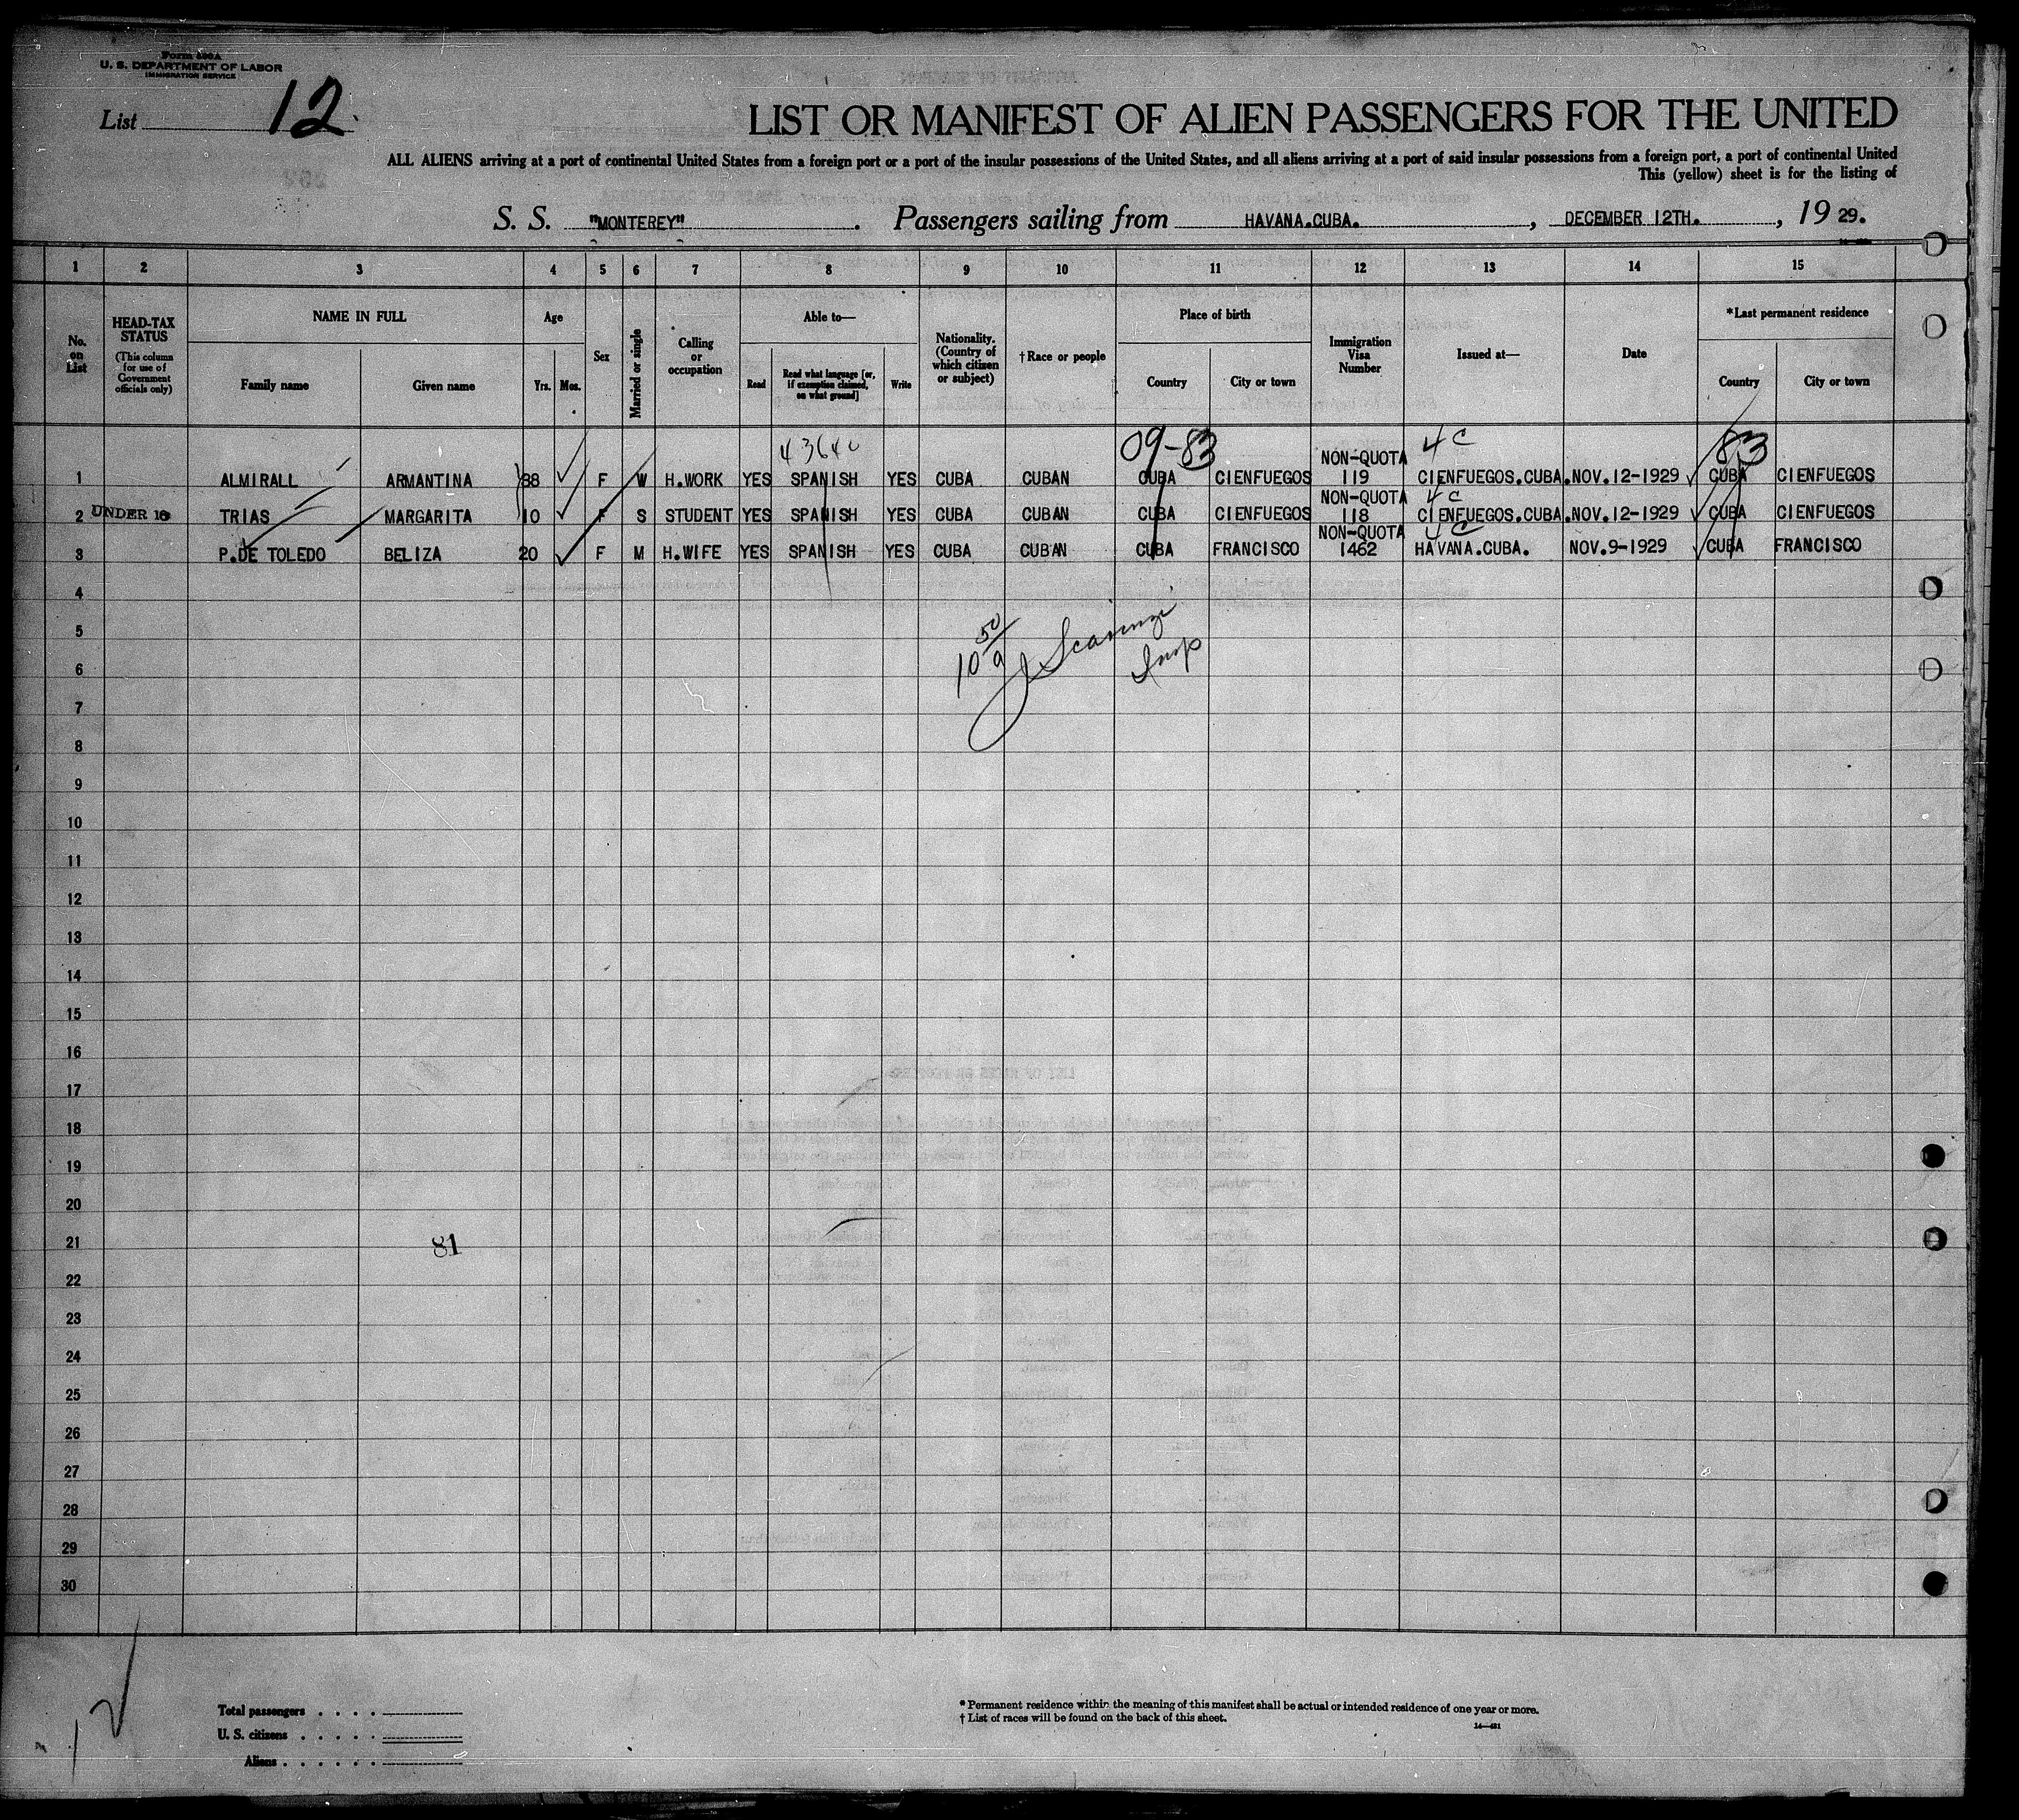 U. S. DEPARTMENT OF LABOR
IMMIGRATION SERVICE
List 12
LIST OR MANIFEST OF ALIEN PASSENGERS FOR THE UNITED
ALL ALIENS arriving at a port of continental United States from a foreign port or a port of the insular possessions of the United States, and all aliens arriving at a port of said insular possessions from a foreign port, a port of continental United
This (yellow) sheet is for the listing of
S. S. "MONTEREY". Passengers sailing from HAVANA.CUBA. , DECEMBER 12TH. , 19 29.
1 2 3 4 5 6 7 8 9 10 11 12 13 14 15
No. on List
HEAD-TAX STATUS (This column for use of Government officials only)
NAME IN FULL
Family name Given name
Age
Yrs. Mos.
Sex
Married or single
Calling or occupation
Able to—
Read Read what language [or, if exemption claimed, on what ground] Write
Nationality. (Country of which citizen or subject)
†Race or people
Place of birth
Country City or town
Immigration Visa Number
Issued at—
Date
*Last permanent residence
Country City or town
43640 09-83 4c 83
NON-QUOTA
1 ALMIRALL ARMANTINA 38 F W H.WORK YES SPANISH YES CUBA CUBAN CUBA CIENFUEGOS 119 CIENFUEGOS.CUBA.NOV.12-1929 CUBA CIENFUEGOS
NON-QUOTA 4c
2 UNDER 16 TRIAS MARGARITA 10 F S STUDENT YES SPANISH YES CUBA CUBAN CUBA CIENFUEGOS 118 CIENFUEGOS.CUBA.NOV.12-1929 CUBA CIENFUEGOS
NON-QUOTA 4c
3 P.DE TOLEDO BELIZA 20 F M H.WIFE YES SPANISH YES CUBA CUBAN CUBA FRANCISCO 1462 HAVANA.CUBA. NOV.9-1929 CUBA FRANCISCO
4
5
10 50 a
Insp
6
7
8
9
10
11
12
13
14
15
16
17
18
19
20
21 81
22
23
24
25
26
27
28
29
30
Total passengers . . . .
U. S. citizens . . . . .
Aliens . . . . . .
* Permanent residence within the meaning of this manifest shall be actual or intended residence of one year or more.
† List of races will be found on the back of this sheet.